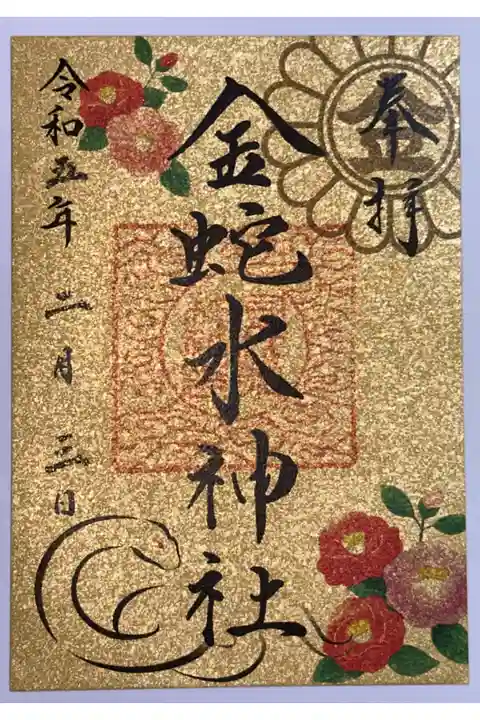 奉拝
金
金蛇水神社
令和五年 二月 三日